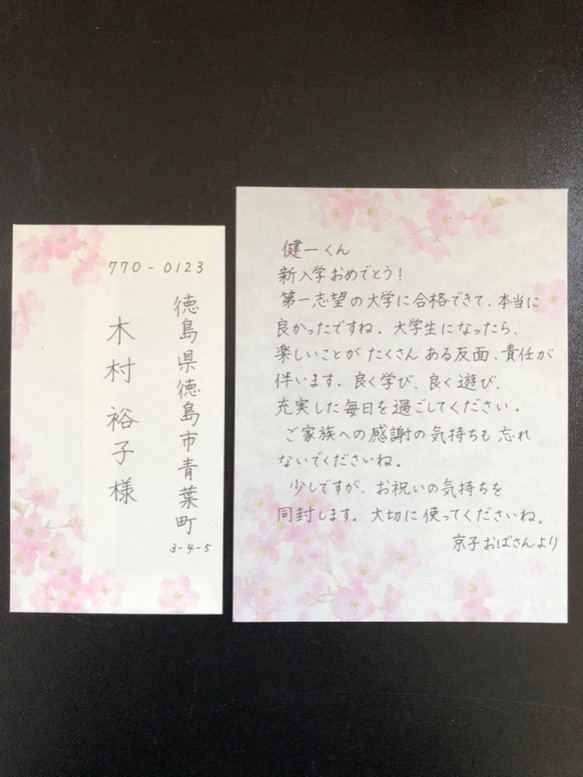 770-0123
徳島県徳島市青葉町
3-4-5
木村裕子様
健一くん
新入学おめでとう!
第一志望の大学に合格できて、本当に
良かったですね。大学生になったら、
楽しいことがたくさんある反面、責任が
伴います。良く学び、良く遊び、
充実した毎日を過ごしてください。
ご家族への感謝の気持ちも忘れ
ないでくださいね。
少しですが、お祝いの気持ちを
同封します。大切に使ってくださいね。
京子おばさんより